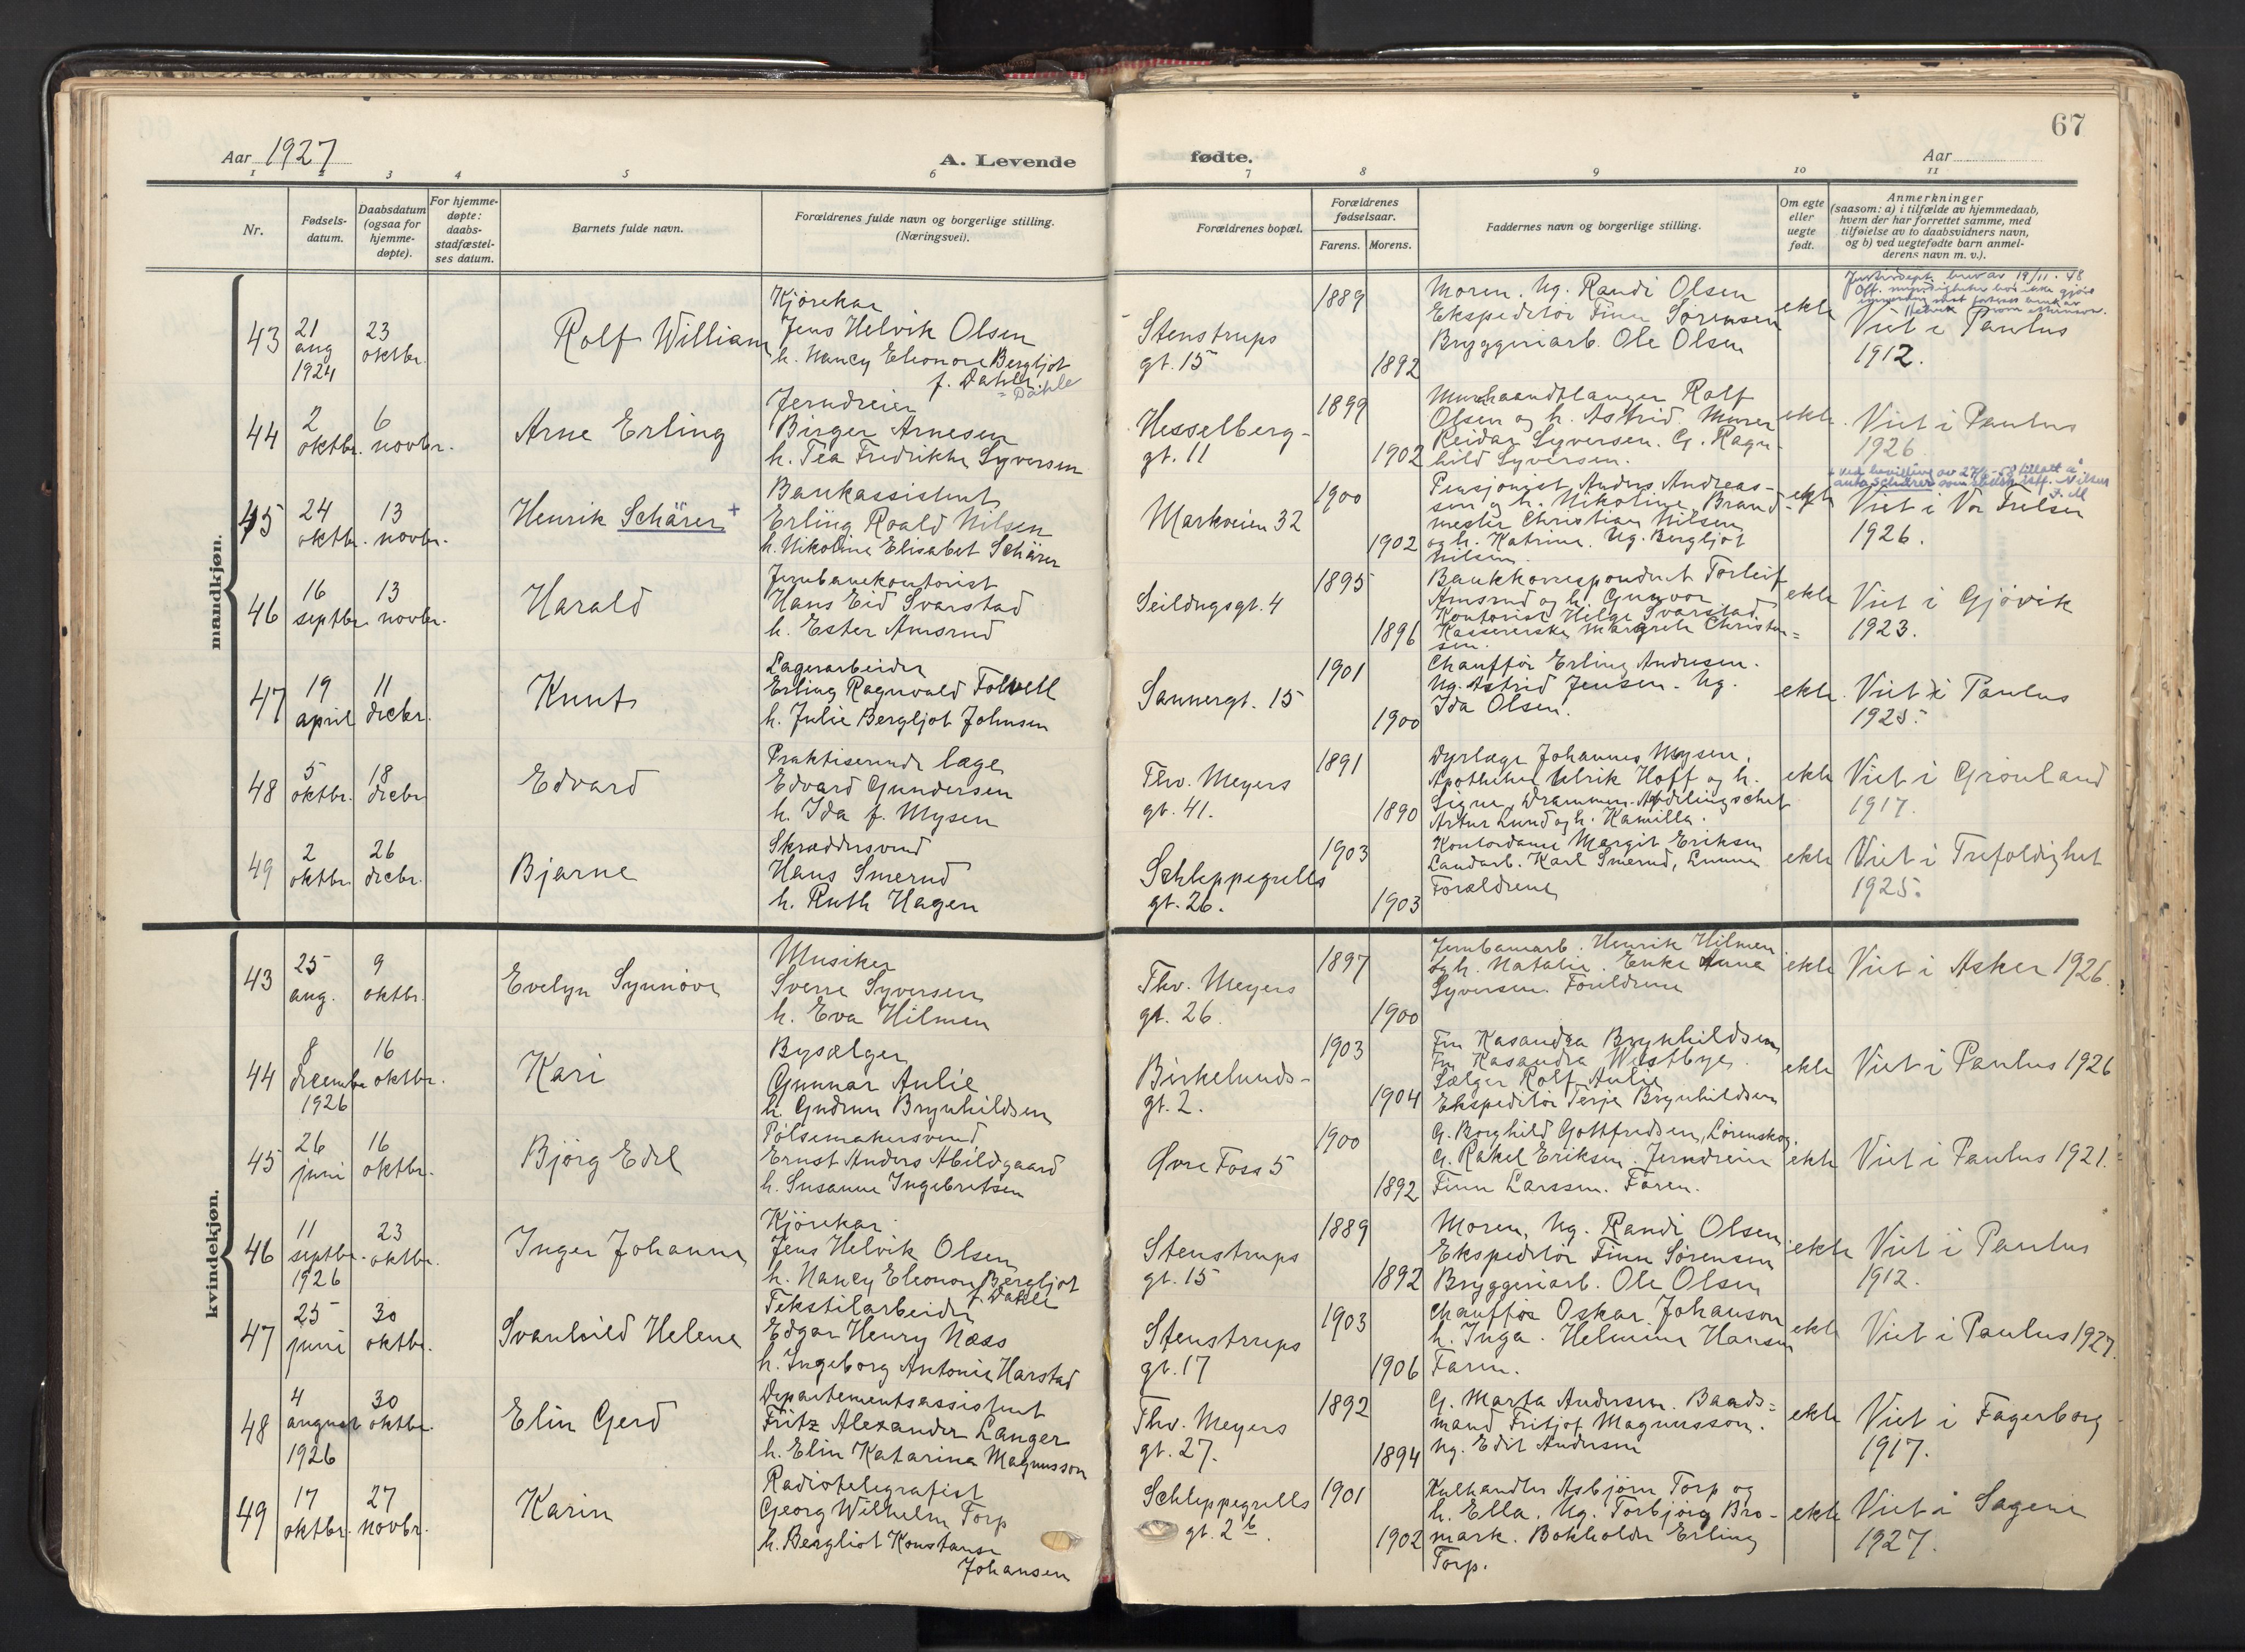 67
Aar 1927
A. Levende
fødte.
Aar
1 2 3 4 5 6 7 8 9 10 11
Nr.
Fødsels-
datum.
Daabsdatum
(ogsaa for
hjemme-
døpte).
For hjemme-
døpte:
daabs-
stadfæstel-
ses datum.
Barnets fulde navn.
Forældrenes fulde navn og borgerlige stilling.
(Næringsvei).
Forældrenes bopæl.
Forældrenes
fødselsaar.
Farens. Morens.
Faddernes navn og borgerlige stilling.
Om egte
eller
uegte
født.
Anmerkninger
(saasom: a) i tilfælde av hjemmedaab,
hvem der har forrettet samme, med
tilføielse av to daabsvidners navn,
og b) ved uegtefødte barn anmel-
derens navn m. v.).
mandkjøn.
43
21
aug
1924
23
oktbr.
Rolf William
Kjørekar
Jens Helvik Olsen
h. Nancy Eleonore Bergljot
f. Dahle.
= Dahle
Stenstrups
gt. 15
1889
1892
Moren. Ug. Randi Olsen
Ekspeditør Finn Sørensen
Bryggeriarb. Ole Olsen
ekte
brev av 19/11. 48
Viet i Paulus
1912.
44
2
oktbr.
6
novbr.
Arne Erling
Jerndreier
Birger Arnesen
h. Tea Fredrikke Syversen
Hesselberg-
gt. 11
1899
1902
Murhaandtlanger Rolf
Olsen og h. Astrid. Murer
Reidar Syversen. G. Ragn-
hild Syversen.
ekte.
Viet i Paulus
1926
45
24
oktbr.
13
novbr.
Henrik Schärer +
Bankassistent
Erling Roald Nilsen
h. Nikoline Elisabet Schärer
Markveien 32
1900
1902
Pensjonist Anders Andreas-
sen og h. Nikoline. Brand-
mester Christian Nilsen
og h. Katrine. Ug. Bergljot
Nilsen.
ekte
+ ved bevilling av 27/2-58 tillatt å
anta Schärer som
Viet i Vor Frelser
1926.
46
16
septbr.
13
novbr.
Harald
Jernbanekontorist
Hans Eid Svarstad
h. Ester Amsrud
Seildugsgt. 4
1895
1896
Bankkorrespondent Torleif
Amsrud og h. Gunvor
Kontorist Helge Svarstad
Kassererske Margrete Christen=
sen.
ekte
Viet i Gjøvik
1923.
47
19
april
11
decbr.
Knut
Lagerarbeider
Erling Ragnvald Folvell
h. Julie Bergljot Johnsen
Sannergt. 15
1901
1900
Chauffør Erling Andresen.
Ug. Astrid Jensen. Ug.
Ida Olsen.
ekte.
Viet i Paulus
1925.
48
5
oktbr.
18
decbr.
Edvard
Praktiserende læge
Edvard Gundersen
h. Ida f. Mysen
Thv. Meyers
gt. 41.
1891
1890
Dyrlæge Johannes Mysen.
Apotheker Ulrik Hoff og h.
Signe, Drammen. Avdelingschef
Artur Lund og h. Kamilla.
ekte
Viet i Grønland
1917.
49
2
oktbr.
26
decbr.
Bjarne
Skræddersvend
Hans Smerud
h. Ruth Hagen
Schleppegrells
gt. 26.
1903
1903
Kontordame Margit Eriksen
Landarb. Karl Smerud,
Forældrene
ekte
Viet i Trefoldighet
1925.
kvindekjøn.
43
25
aug.
9
oktbr.
Evelyn Synnøve
Musiker
Sverre Syversen
h. Eva Hilmen
Thv. Meyers
gt. 26.
1897
1900
Jernbanearb. Henrik Hilmen
og h. Natalie. Enke Anna
Syversen. Foreldrene
ekte
Viet i Asker 1926.
44
8
decembr
1926
16
oktbr.
Kari
Bysælger
Gunnar Aulie
h. Gudrun Brynhildsen
Birkelunds-
gt. 2.
1903
1904
Fru Kasandra Brynhildsen
Fru Kasandra Westbye.
Sælger Rolf Aulie
Ekspeditør Terje Brynhildsen
ekte
Viet i Paulus 1926
45
26
juni
16
oktbr.
Bjørg Edel
Pølsemakersvend
Ernst Anders Abildgaard
h. Susanne Ingebretsen
Øvre Foss 5
1900
1892
G. Borghild Gottfredsen, Lørenskog.
G. Rakel Eriksen. Jerndreier
Finn Larssen. Faren.
ekte
Viet i Paulus 1921.
46
11
septbr.
1926
23
oktbr.
Inger Johanne
Kjørekar
Jens Helvik Olsen
h. Nancy Eleonore Bergljot
f. Dahle
Stenstrups
gt. 15
1889
1892
Moren, Ug. Randi Olsen
Ekspeditør Finn Sørensen
Bryggeriarb. Ole Olsen
ekte
Viet i Paulus
1912.
47
25
juni
30
oktbr.
Svanhild Helene
Tekstilarbeider
Edgar Henry Næss
h. Ingeborg Antonie Harstad
Stenstrups
gt. 17
1903
1906
Chauffør Oskar Johanson
h. Inga. Helmine Hansen
Faren.
ekte
Viet i Paulus 1927.
48
4
august
1926
30
oktbr.
Elin Gerd
Departementsassistent
Fritz Alexander Langer
h. Elin Katarina Magnusson
Thv. Meyers
gt. 27.
1892
1894
G. Marta Andersen. Baads=
mand Fritjof Magnusson.
Ug. Edit Andersen
ekte
Viet i Fagerborg
1917.
49
17
oktbr.
27
novbr.
Karin
Radiotelegrafist
Georg Wilhelm Torp
h. Bergliot Konstanse
Johansen
Schleppegrells
gt. 2b.
1901
1902
Kulhandler Asbjørn Torp og
h. Ella. Ug. Torbjørg Bro-
mark. Bokholder Erling
Torp.
ekte
Viet i Sagene
1927.